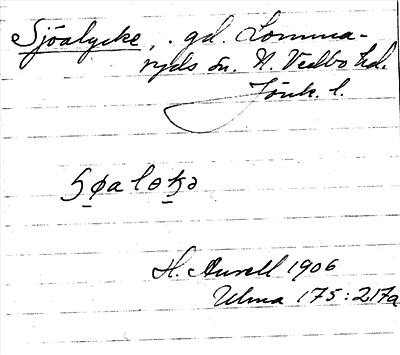 Sjöalycke, . gd. Lomma-
ryds sn. N. Vedbo hd.
Jönk. l.
H. Aurell 1906
Ulma 175:217a